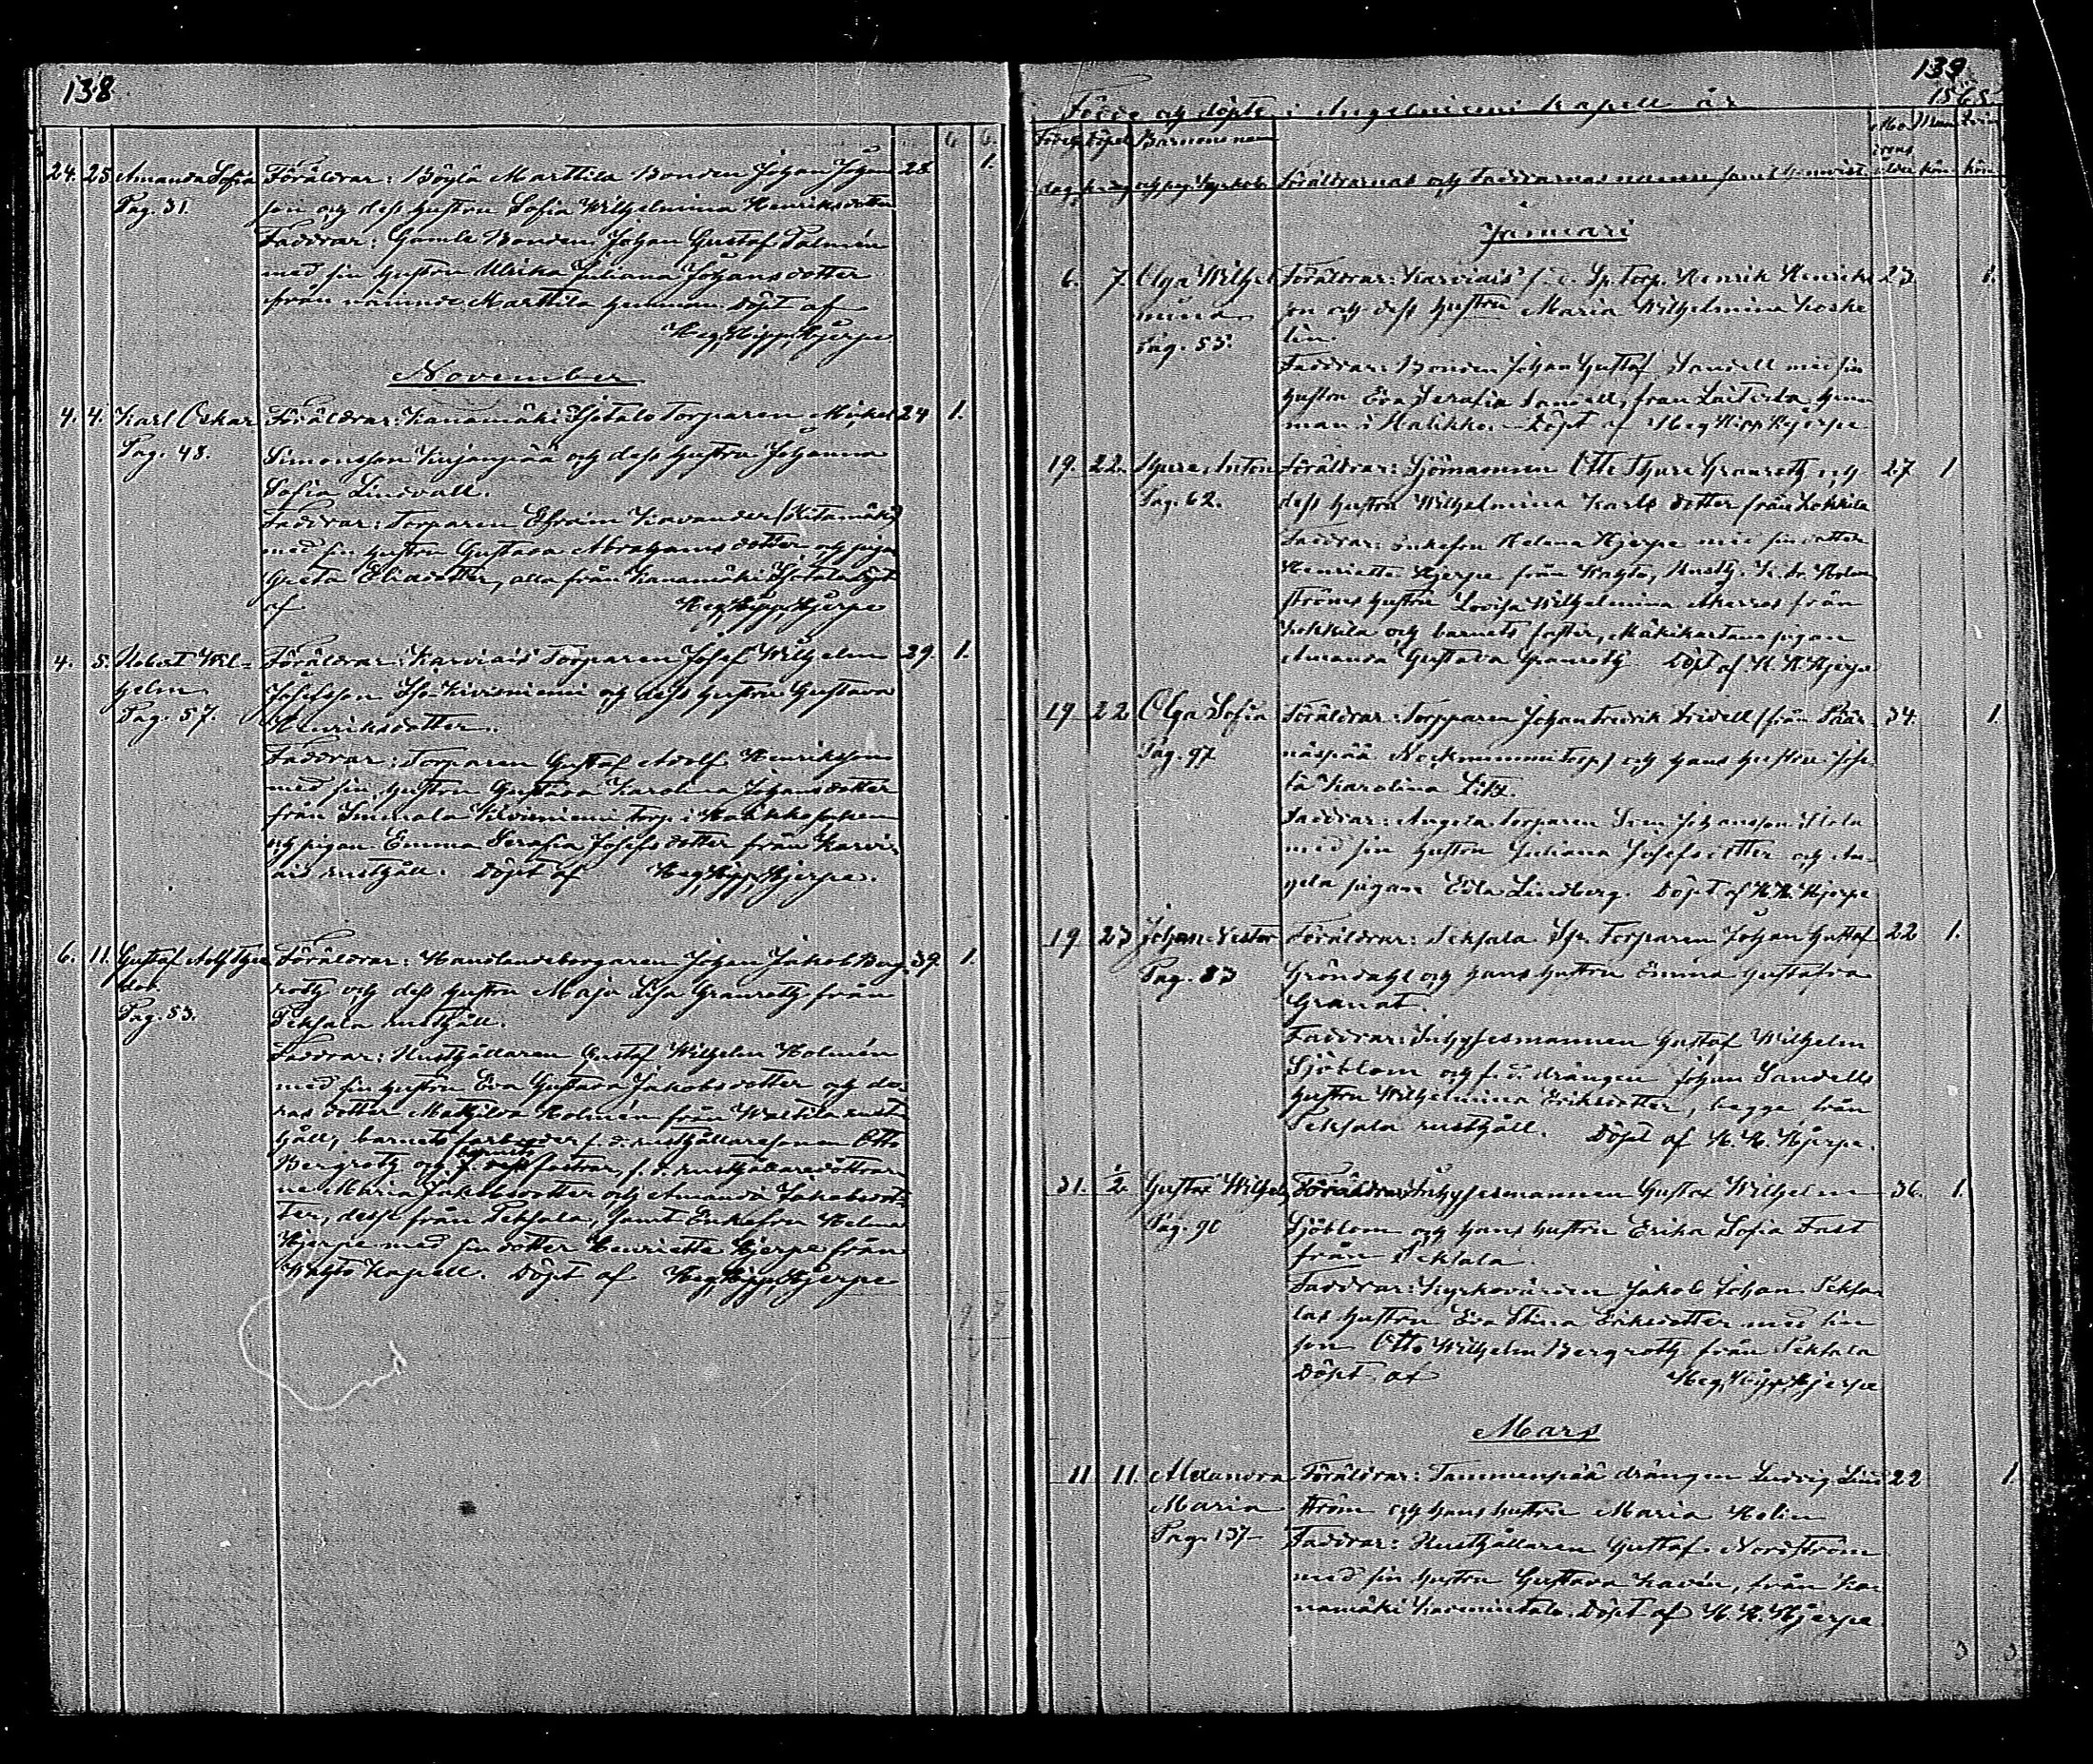 138
6. 6.
24. 25 Amanda Sofia Föräldrar: Böylä Marttila Bonden Johan Johan 28 1.
Pag. 31. son och dess hustru Sofia Wilhelmina Henriksdotter
Faddrar: Gamle Bonden Johan Gustaf Palmén
med sin hustru Ulrika Juliana Johansdotter
från nämnde Marttila hemman. Döpt af
Heg. Kapp. Hjerpe
November
4. 4. Karl Oskar Föräldrar: Kanamäki Isotalo Torparen Mickel 24 1.
Pag. 48. Simonsson Kujanpää och dess hustru Johanna
Sofia Lindvall.
Faddrar: Torparen Efraim Kavander
med sin hustru Gustava Abrahamsdotter och pigan
Greta Eliædotter, alla från Kanamäki Isotalo Döpt
af Heg. Kapp. Hjerpe
4. 5. Robert Wil- Föräldrar: Karviais Torparen Josef Wilhelm 29. 1.
helm Josefsson Iso Kivisniemi och dess hustru Gustava
Pag. 57. Henriksdotter.
Faddrar: Torparen Gustaf Adolf Henriksson
med sin hustru Gustava Karolina Johansdotter
från Kivisniemi torp i Halikko socken
och pigan Emma Serafia Josefsdotter från Karvi-
ais rusthåll. Döpt af Heg. Kapp. Hjerpe.
6. 11. Gustaf Adolf Föräldrar: Handlandeborgaren Johan Jakob Berg- 39. 1.
roth och dess hustru Maja Lisa Granroth från
Pag. 53. Peksala rusthåll.
Faddrar: Rusthållaren Gustaf Wilhelm Holmén
med sin hustru Eva Gustava Jakobsdotter och de-
ras dotter Mathilda Holmén från Valtila rust-
håll, barnets farbroder f. d. rusthållaresonen Otto
Bergroth och barnets fastrar, f. d. rusthållaredöttrar-
ne Maria Jakobsdotter och Amanda Jakobsdot-
ter, desse från Peksala, samt Enkefru Helena
Hjerpe med sin dotter Henriette Hjerpe från
Kapell. Döpt af Heg. Kapp. Hjerpe
139.
Födde och döpte i Angelniemi Kapell år 1865
Födel. Döpel. Barnens namn Mo- Man Qvin
drens
dag dag och pag. i kyrkob. Föräldrarnas och Faddrarnas namn samt hemvist ålder kön kön
Januari
6. 7. Olga Wilhel- Föräldrar: Karviais f. d. Sp. torp. Henrik Henriks 23 1.
mina son och dess hustru Maria Wilhelmina Koske
Pag. 55. lin.
Faddrar: Bonden Johan Gustaf Sandell med sin
hustru Eva Serafia Sandell, från hem-
man i Halikko. Döpt af Heg. Kapp. Hjerpe
19. 22. Thure Anton Föräldrar: Sjömannen Otto Thure Granroth och 27 1
Pag. 62. dess hustru Wilhelmina Karlsdotter från Kokkila
Faddrar: Enkefru Helena Hjerpe med sin dotter
Henriette Hjerpe från Rusth. K. Holm
ströms hustru Lovisa Wilhelmina från
Kokkila och barnets faster, pigan
Amanda Gustava Granroth Döpt af H. K. Hjerpe
19 22 Olga Sofia Föräldrar: Torpparen Johan Fredrik Fridell från Pää- 34. 1.
Pag. 97 torp och hans hustru
Karolina
Faddrar: Angela torparen Johansson
med sin hustru Juliana Josefsdotter och An-
gela pigan Edla Lindberg. Döpt af H. K. Hjerpe
19 23 Johan Nestor Föräldrar: Peksala Sp. Torparen Johan Gustaf 22 1.
Pag. 83 Gröndahl och hans hustru Emma Gustafva
Granat.
Faddrar: Inhysesmannen Gustaf Wilhelm
Sjöblom och f. d. drängen Johan Sandells
hustru Wilhelmina Eriksdotter, begge från
Peksala rusthåll. Döpt af H. K. Hjerpe.
31. 2. Gustaf Wilhelm Föräldrar: Inhysesmannen Gustaf Wilhelm 36. 1.
Pag. 90 Sjöblom och hans hustru Erika Sofia Fast
från Peksala.
Faddrar: Kyrkovärden Jakob Johan Peksa-
las hustru Eva Stina Eriksdotter med sin
son Otto Wilhelm Bergroth från Peksala
Döpt af Heg. Kapp. Hjerpe
Mars
11. 11. Alexandra Föräldrar: Tammenpää drängen Ludvig Lind 22 1.
Maria ström och hans hustru Maria Helin
Pag. 137 Faddrar: Rusthållaren Gustaf Nordström
med sin hustru Gustava Kavén, från Ka-
namäki Döpt af H. K. Hjerpe
3 3